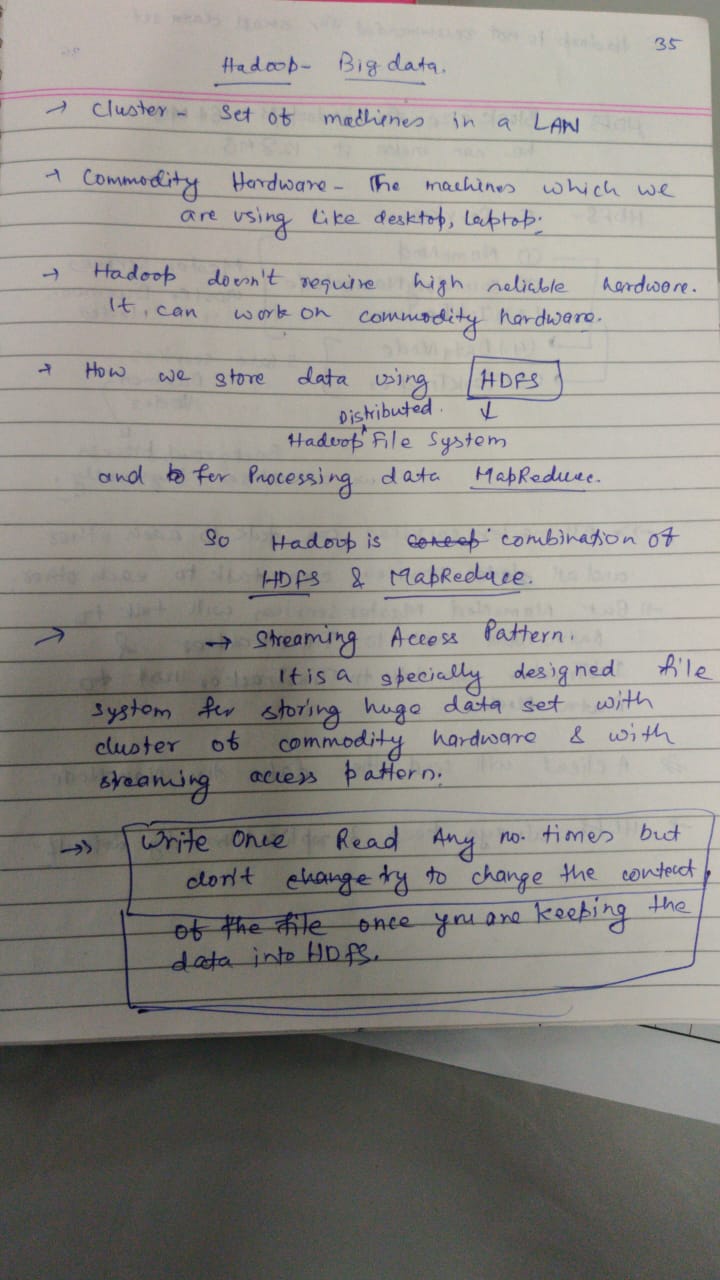 35
Hadoop- Big data.
→ Cluster - Set of machienes in a LAN
→ Commodity Hardware - The machines which we
are using like desktop, laptop.
→ Hadoop doesn't require high reliable hardware.
It can work on commodity hardware.
→ How we store data using HDFS
Distributed. ↓
Hadoop ^ File System
and for Processing data MapReduce.
So Hadoop is combination of
HDFS & MapReduce.
→ → Streaming Access Pattern.
It is a specially designed file
system for storing huge data set with
cluster of commodity hardware & with
streaming access pattern.
→» Write Once Read Any no. times but
don't change try to change the contect
of the file once you are keeping the
data into HDFS.